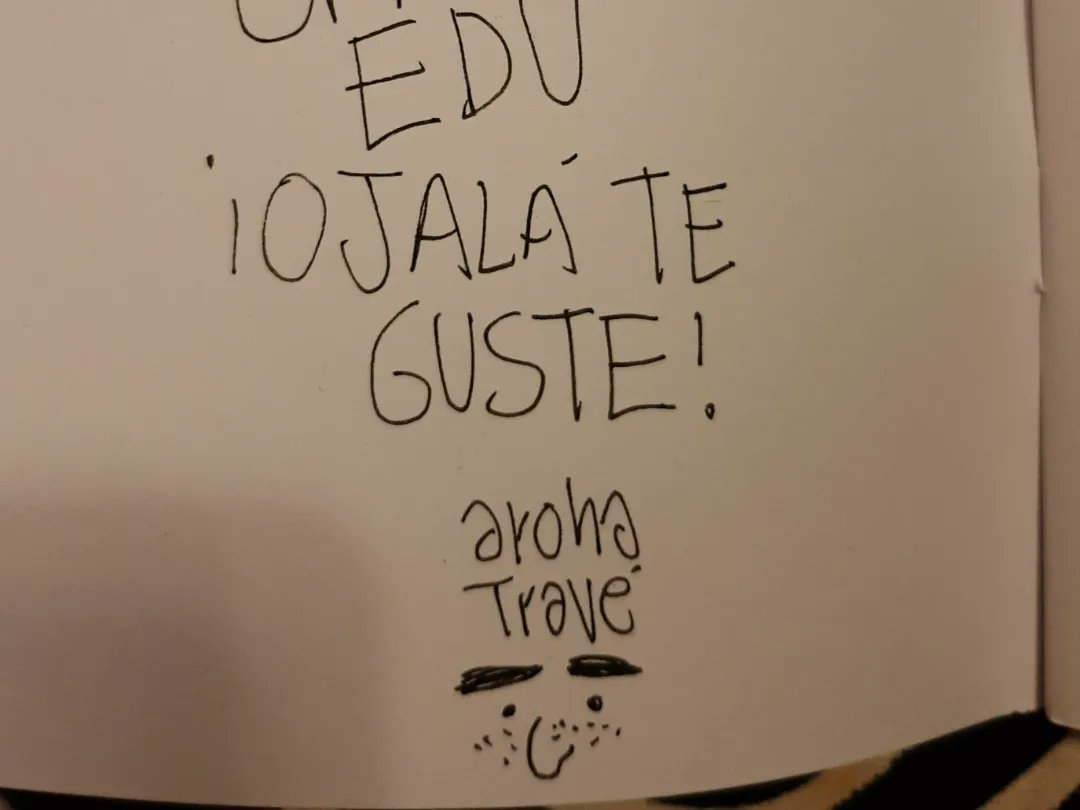 EDU
¡OJALÁ TE
GUSTE!
aroha
Travé